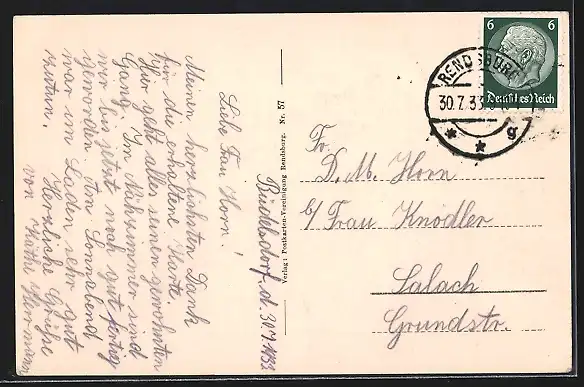 Büdelsdorf, d. 30.7.1933
Liebe Frau Horn!
Meinen herzlichsten Dank
für die erhaltene Karte.
Hier geht alles seinen gewohnten
Gang. Im Nähzimmer sind
wir bis jetzt noch gut fertig
geworden. Am Sonnabend
war im Laden sehr gut
zutun.
Herzliche Grüße
von Käthe Herrmann
Verlag: Postkarten-Vereinigung Rendsburg. Nr. 57
6 6
Deutsches Reich
RENDSBURG
30.7.33
* * g
Fr.
D. M. Horn
b/ Frau Knödler
Salach
Grundstr.